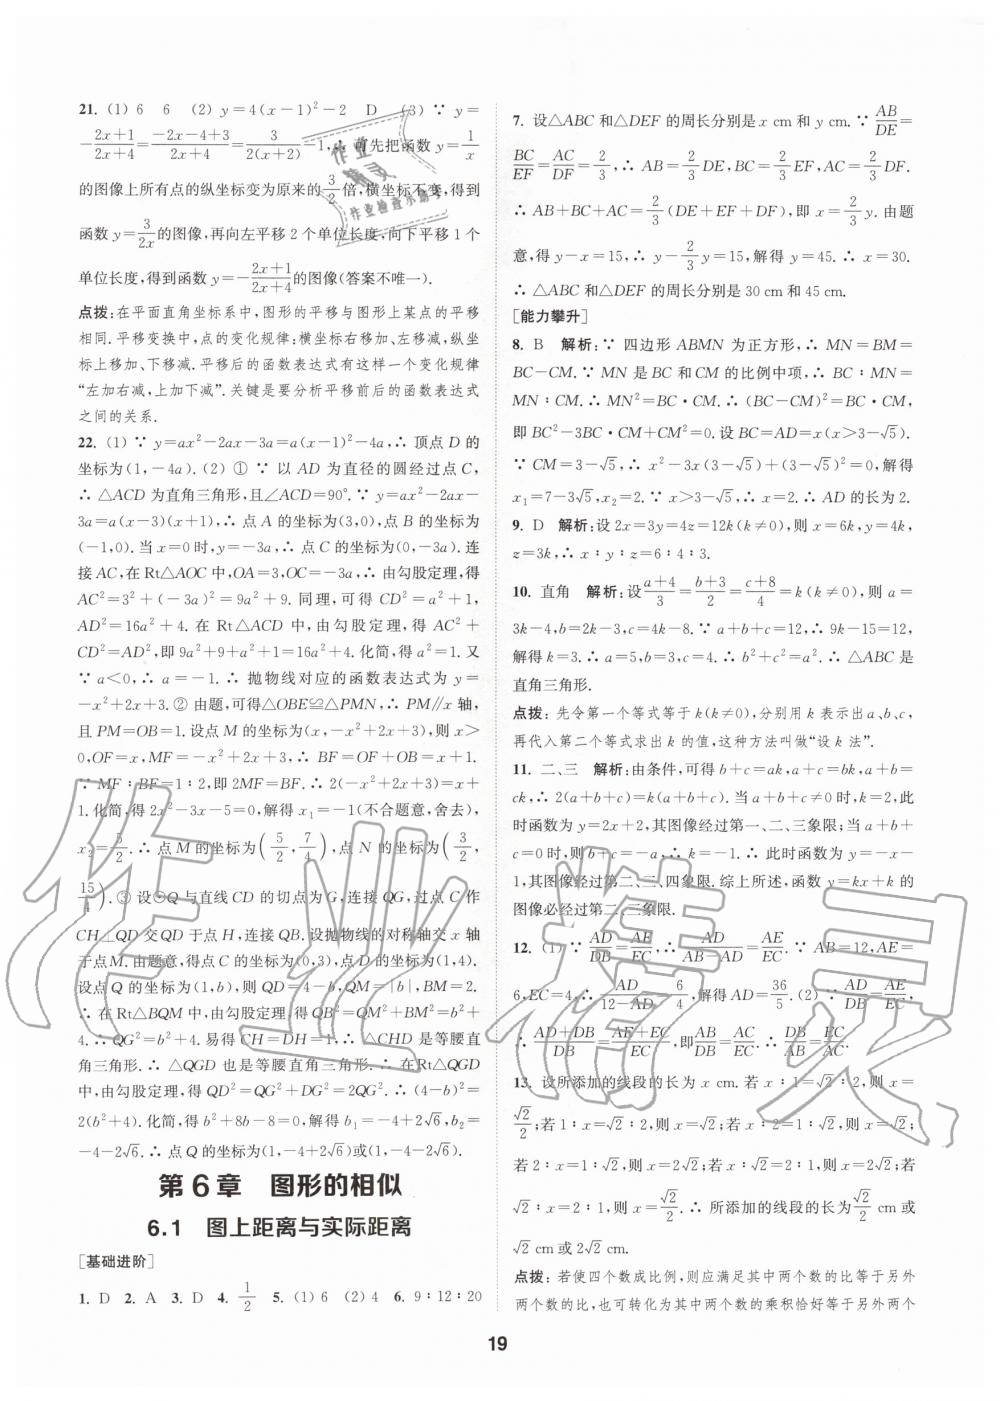 21. (1) 6 6 (2) y=4(x-1)²-2 D (3) ∵ y=
-(2x+1)/(2x+4)=(-2x-4+3)/(2x+4)=3/(2(x+2))-1,∴ 可先把函数 y=1/x
的图像上所有点的纵坐标变为原来的 3/2 倍,横坐标不变,得到
函数 y=3/(2x) 的图像,再向左平移 2 个单位长度,向下平移 1 个
单位长度,得到函数 y=-(2x+1)/(2x+4) 的图像(答案不唯一).
点拨:在平面直角坐标系中,图形的平移与图形上某点的平移
相同.平移变换中,点的变化规律:横坐标右加、左移减,纵坐
标上移加、下移减.平移后的函数表达式有这样一个变化规律
“左加右减,上加下减”.关键是要分析平移前后的函数表达式
之间的关系.
22. (1) ∵ y=ax²-2ax-3a=a(x-1)²-4a,∴ 顶点 D 的
坐标为(1,-4a). (2) ① ∵ 以 AD 为直径的圆经过点 C,
∴ △ACD 为直角三角形,且∠ACD=90°. ∵ y=ax²-2ax-
3a=a(x-3)(x+1),∴ 点 A 的坐标为(3,0),点 B 的坐标为
(-1,0). 当 x=0 时,y=-3a,∴ 点 C 的坐标为(0,-3a). 连
接 AC,在 Rt△AOC 中,OA=3,OC=-3a,∴ 由勾股定理,得
AC²=3²+(-3a)²=9a²+9. 同理,可得 CD²=a²+1,
AD²=16a²+4. 在 Rt△ACD 中,由勾股定理,得 AC²+
CD²=AD²,即 9a²+9+a²+1=16a²+4. 化简,得 a²=1. 又
∵ a<0,∴ a=-1. ∴ 抛物线对应的函数表达式为 y=
-x²+2x+3. ② 由题意,可得△OBE≌△PMN,∴ PM∥x 轴,
且 PM=OB=1. 设点 M 的坐标为(x,-x²+2x+3),则 x>
0,OF=x,MF=-x²+2x+3,∴ BF=OF+OB=x+1.
∵ MF∶BF=1∶2,即 2MF=BF. ∴ 2(-x²+2x+3)=x+
1. 化简,得 2x²-3x-5=0,解得 x₁=-1(不合题意,舍去),
x₂=5/2. ∴ 点 M 的坐标为(5/2,7/4),点 N 的坐标为(3/2,
15/4). ③ 设⊙Q 与直线 CD 的切点为 G,连接 QG,过点 C 作
CH⊥QD 交 QD 于点 H,连接 QB.设抛物线的对称轴交 x 轴
于点 M.由题意,得点 C 的坐标为(0,3),点 D 的坐标为(1,4).
设点 Q 的坐标为(1,b),则 QD=4-b,QM=|b|,BM=2.
∴ 在 Rt△BQM 中,由勾股定理,得 QB²=QM²+BM²=b²+
4. ∴ QG²=b²+4. 易得 CH=DH=1. ∴ △CHD 是等腰直
角三角形. ∴ △QGD 也是等腰直角三角形. ∴ 在 Rt△QGD
中,由勾股定理,得 QD²=QG²+DG²=2QG². ∴ (4-b)²=
2(b²+4). 化简,得 b²+8b-8=0,解得 b₁=-4+2√6,b₂=
-4-2√6. ∴ 点 Q 的坐标为(1,-4+2√6)或(1,-4-2√6).
第 6 章 图形的相似
6.1 图上距离与实际距离
[基础进阶]
1. D 2. A 3. D 4. 1/2 5. (1) 6 (2) 4 6. 9∶12∶20
7. 设△ABC 和△DEF 的周长分别是 x cm 和 y cm. ∵ AB/DE=
BC/EF=AC/DF=2/3,∴ AB=2/3DE,BC=2/3EF,AC=2/3DF.
∴ AB+BC+AC=2/3(DE+EF+DF),即 x=2/3y. 由题
意,得 y-x=15,∴ y-2/3y=15,解得 y=45. ∴ x=30.
∴ △ABC 和△DEF 的周长分别是 30 cm 和 45 cm.
[能力攀升]
8. B 解析:∵ 四边形 ABMN 为正方形,∴ MN=BM=
BC-CM. ∵ MN 是 BC 和 CM 的比例中项,∴ BC∶MN=
MN∶CM. ∴ MN²=BC·CM. ∴ (BC-CM)²=BC·CM,
即 BC²-3BC·CM+CM²=0. 设 BC=AD=x(x>3-√5).
∵ CM=3-√5,∴ x²-3x(3-√5)+(3-√5)²=0,解得
x₁=7-3√5,x₂=2. ∵ x>3-√5,∴ x=2. ∴ AD 的长为 2.
9. D 解析:设 2x=3y=4z=12k(k≠0),则 x=6k,y=4k,
z=3k,∴ x∶y∶z=6∶4∶3.
10. 直角 解析:设(a+4)/3=(b+3)/2=(c+8)/4=k(k≠0),则 a=
3k-4,b=2k-3,c=4k-8. ∵ a+b+c=12,∴ 9k-15=12,
解得 k=3. ∴ a=5,b=3,c=4. ∴ b²+c²=a². ∴ △ABC 是
直角三角形.
点拨:先令第一个等式等于 k(k≠0),分别用 k 表示出 a、b、c,
再代入第二个等式求出 k 的值,这种方法叫做“设 k 法”.
11. 二、三 解析:由条件,可得 b+c=ak,a+c=bk,a+b=
ck,∴ 2(a+b+c)=k(a+b+c). 当 a+b+c≠0 时,k=2,此
时函数为 y=2x+2,其图像经过第一、二、三象限;当 a+b+
c=0 时,则 b+c=-a,∴ k=-1,∴ 此时函数为 y=-x-
1,其图像经过第二、三、四象限.综上所述,函数 y=kx+k 的
图像必经过第二、三象限.
12. (1) ∵ AD/DB=AE/EC,∴ AD/(AB-AD)=AE/EC. ∵ AB=12,AE=
6,EC=4,∴ AD/(12-AD)=6/4,解得 AD=36/5. (2) ∵ AD/DB=AE/EC,
∴ (AD+DB)/DB=(AE+EC)/EC,即 AB/DB=AC/EC. ∴ DB/AB=EC/AC.
13. 设所添加的线段的长为 x cm. 若 x∶1=√2∶2,则 x=
√2/2;若 1∶x=√2∶2,则 x=√2;若 x∶2=1∶√2,则 x=√2;
若 2∶x=1∶√2,则 x=2√2;若 x∶√2=1∶2,则 x=√2/2;若
√2∶x=1∶2,则 x=2√2. ∴ 所添加的线段的长为 √2/2 cm 或
√2 cm 或 2√2 cm.
点拨:若使四个数成比例,则应满足其中两个数的比等于另外
两个数的比,也可转化为其中两个数的乘积恰好等于另外两个
19
作业精灵
作业精灵